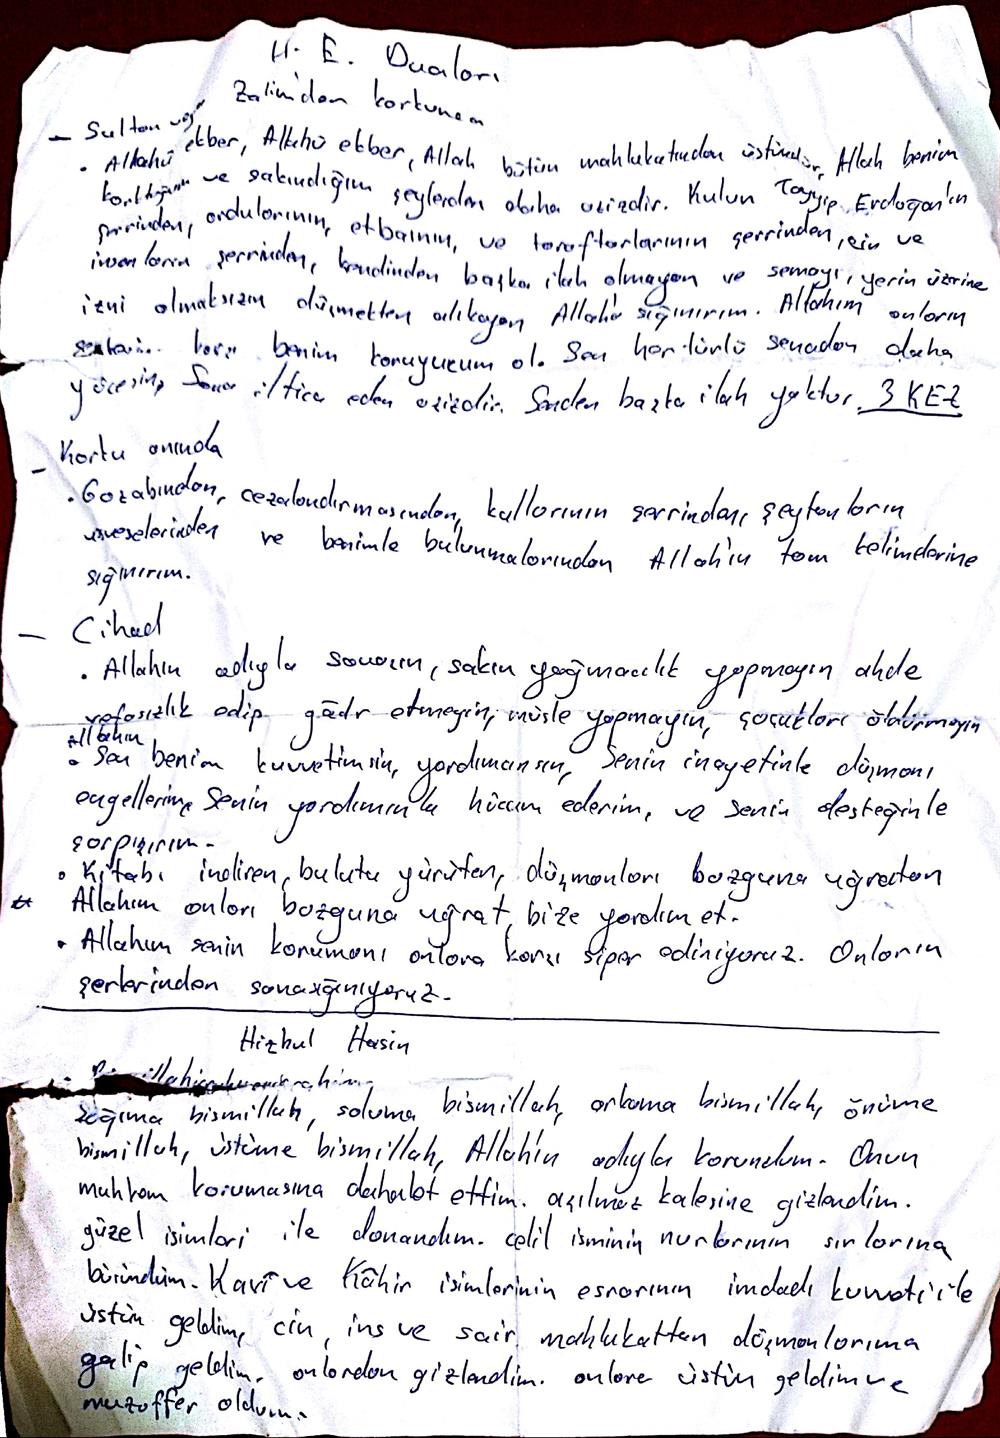 H. E. Duaları
Zalimden korkunca
- Sultan veya
• Allahü ekber, Allahü ekber, Allah bütün mahlukatından üstündür, Allah benim
korktuğum ve sakındığım şeylerden daha azizdir. Kulun Tayyip Erdoğan'ın
şerrinden, ordularının, etbaının, ve taraftarlarının şerrinden, cin ve
insanların şerrinden, kendinden başka ilah olmayan ve semayı, yerin üzerine
izni olmaksızın düşmekten alıkoyan Allah'a sığınırım. Allahım onların
karşı benim koruyucum ol. Sen her türlü senadan daha
yücesin, Sana iltica eden azizdir. Senden başka ilah yoktur. 3 KEZ
- Korku anında
• Gazabından, cezalandırmasından, kullarının şerrinden, şeytanların
vesveselerinden ve benimle bulunmalarından Allah'ın tam kelimelerine
sığınırım.
- Cihad
• Allahın adıyla savaşın, sakın yağmacılık yapmayın ahde
vefasızlık edip gadr etmeyin, müsle yapmayın, çocukları öldürmeyin
Allahım
• Sen benim kuvvetimsin, yardımcımsın, Senin inayetinle düşmanı
engellerim, Senin yardımınla hücum ederim, ve senin desteğinle
çarpışırım.
• Kitabı indiren, bulutu yürüten, düşmanları bozguna uğratan
Allahım onları bozguna uğrat, bize yardım et.
• Allahım senin korumanı onlara karşı siper ediniyoruz. Onların
şerlerinden sana sığınıyoruz.
Hizbul Hasin
sağıma bismillah, soluma bismillah, arkama bismillah, önüme
bismillah, üstüme bismillah, Allah'ın adıyla korundum. Onun
muhkem korumasına dahalet ettim. açılmaz kalesine gizlendim.
güzel isimleri ile donandım. celil isminin nurlarının sırlarına
büründüm. Kavi ve Kâhir isimlerinin esrarının imdadı kuvveti ile
üstün geldim, cin, ins ve sair mahlukattan düşmanlarıma
galip geldim. onlardan gizlendim. onlara üstün geldim ve
muzaffer oldum.